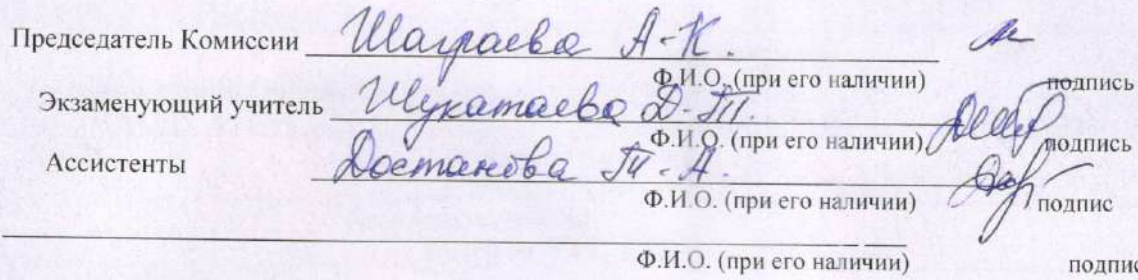 Председатель Комиссии Шаграева А-К.
Ф.И.О. (при его наличии) подпись
Экзаменующий учитель Шукатаева Д-Т.
Ф.И.О. (при его наличии) подпись
Ассистенты Достанова Т-А.
Ф.И.О. (при его наличии) подпис
Ф.И.О. (при его наличии) подпис